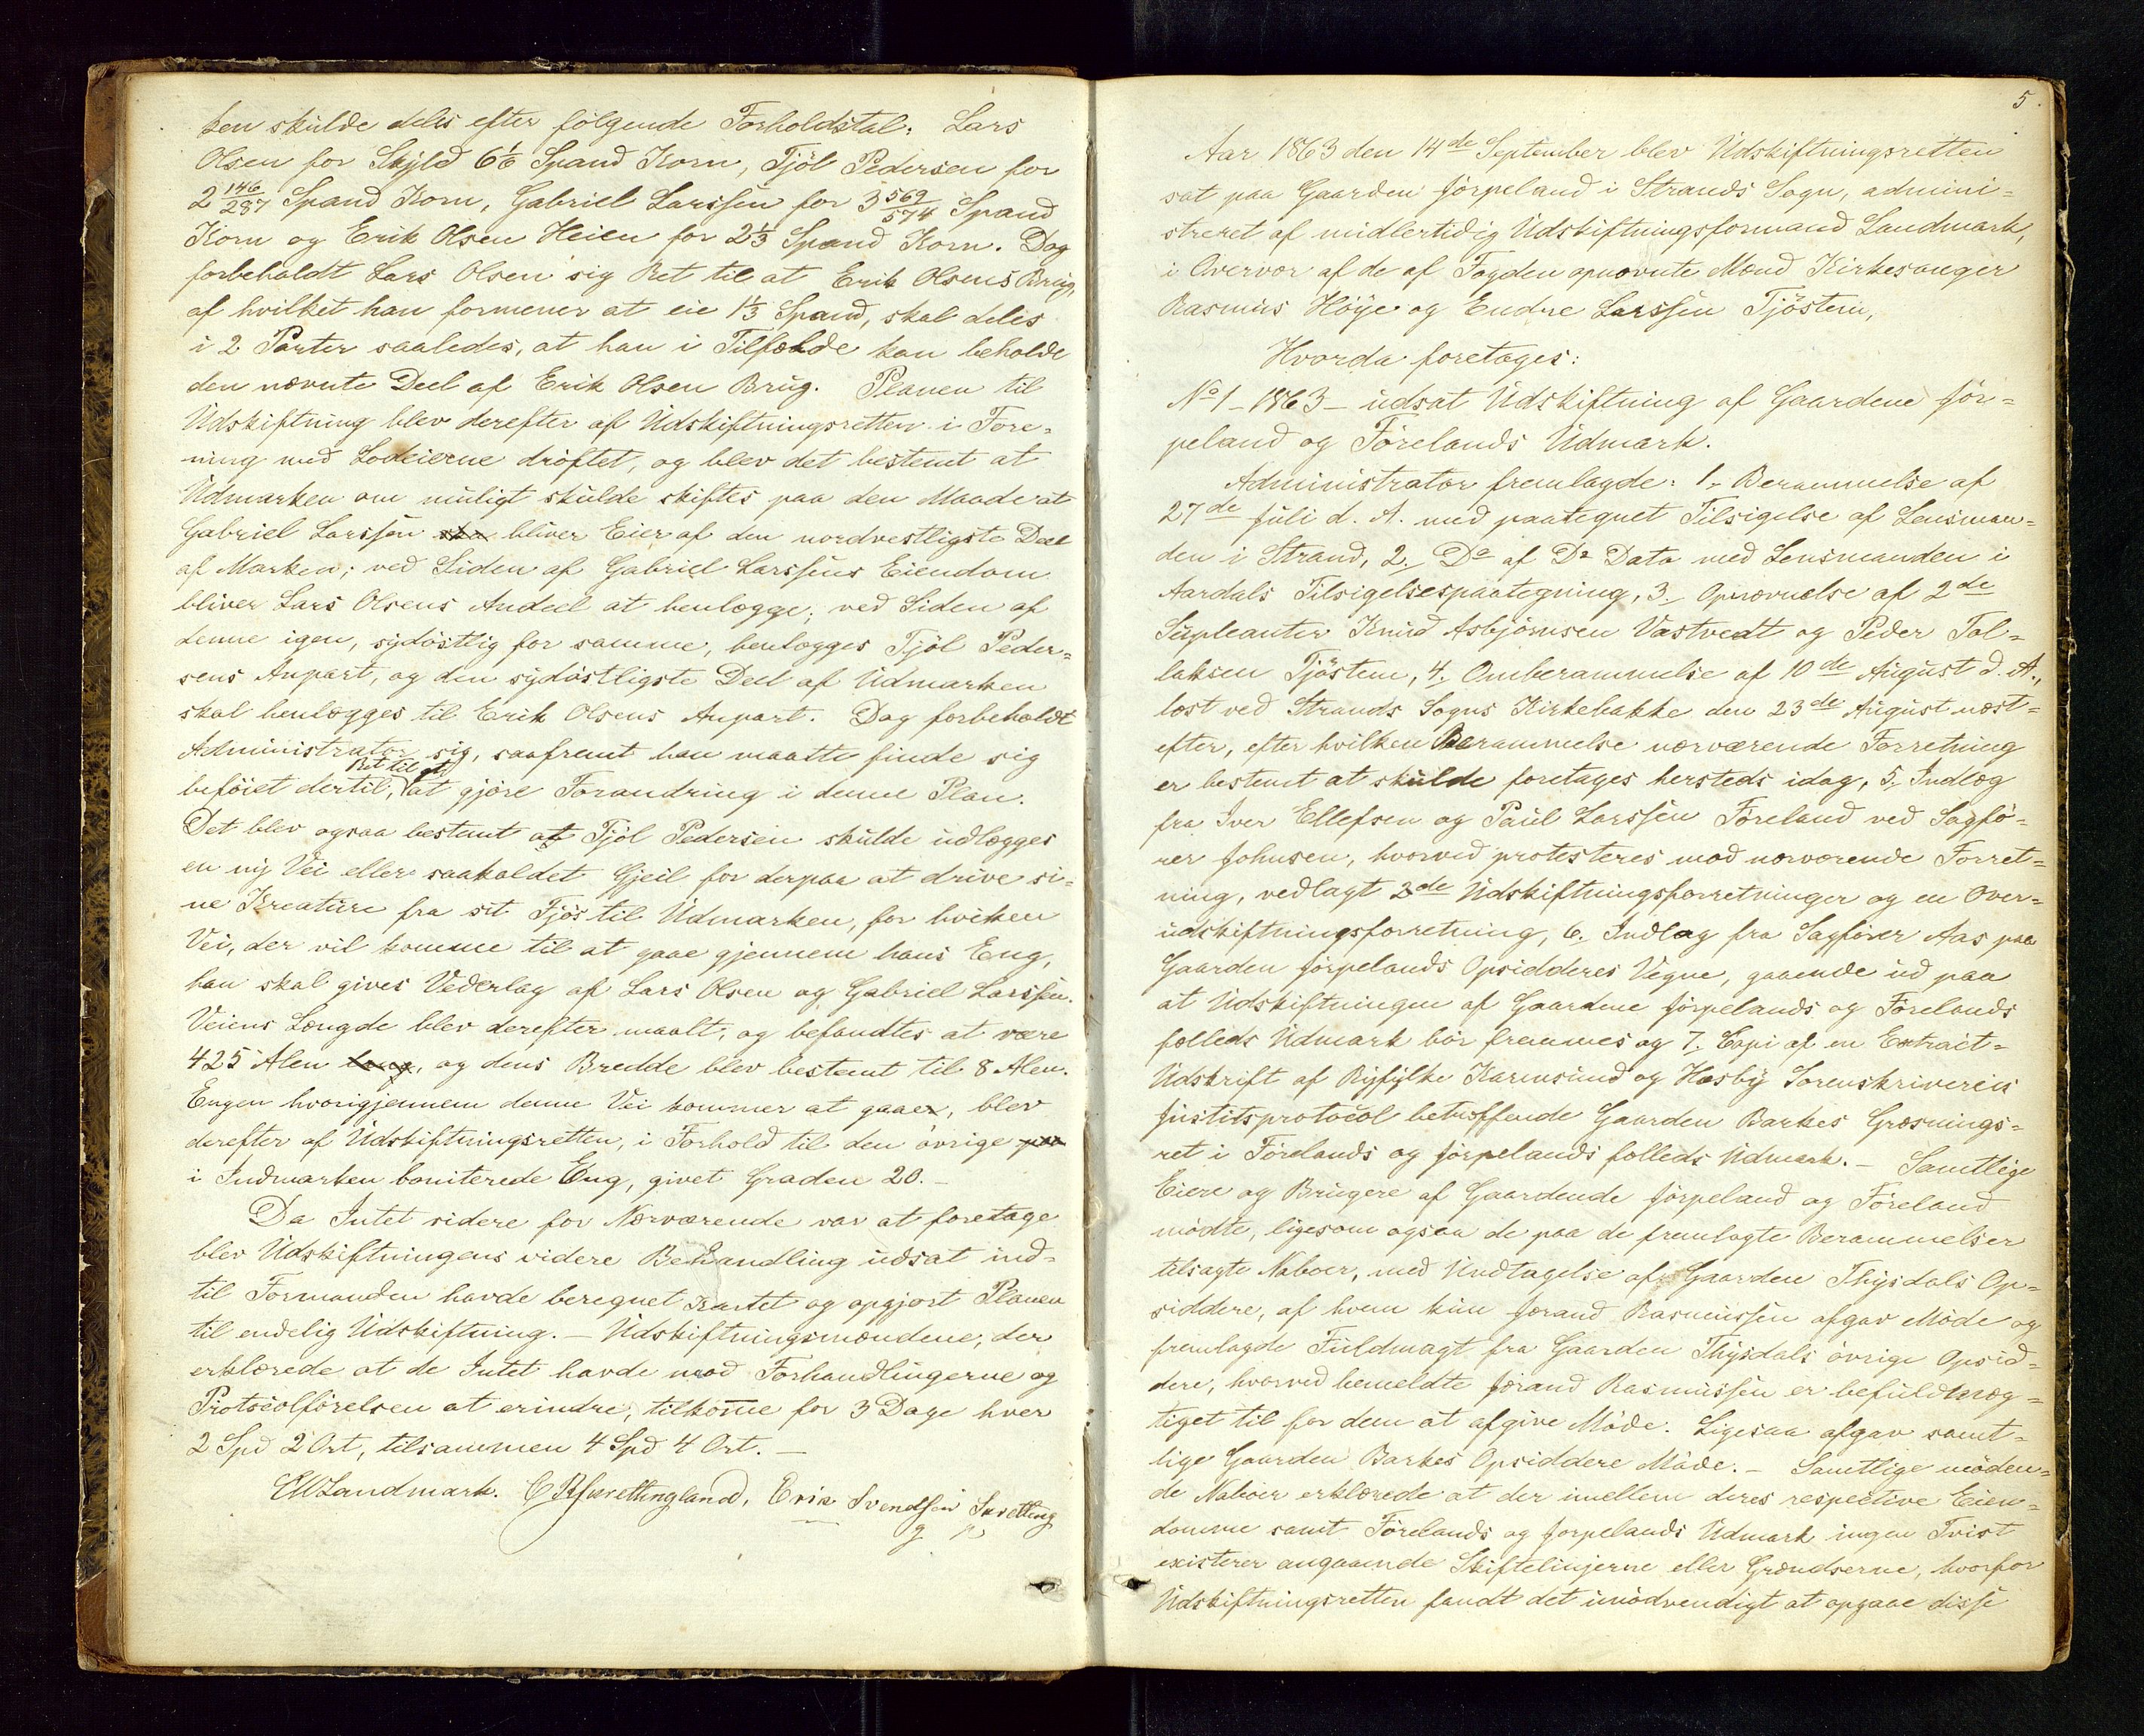 ken skulde deles efter følgende Forholdstal: Lars
Olsen for Skyld 6 1/6 Spand Korn, Tjöl Pedersen for
2 146/287 Spand Korn, Gabriel Larssen for 3 569/574 Spand
Korn og Erik Olsen Heien for 2 1/3 Spand Korn. Dog
forbeholdt Lars Olsen sig Ret til at Erik Olsens Brug,
af hvilket han formener at eie 1 1/3 Spand, skal deles
i 2 Parter saaledes, at han i Tilfælde kan beholde
den nævnte Deel af Erik Olsen Brug. Planen til
Udskiftning blev derefter af Udskiftningsretten i Fore-
ning med Lodeierne drøftet, og blev det bestemt at
Udmarken om muligt skulde skiftes paa den Maade at
Gabriel Larssen bliver Eier af den nordvestligste Deel
af Marken; ved Siden af Gabriel Larssens Eiendom
bliver Lars Olsens Andeel at henlægge; ved Siden af
denne igen, sydöstlig for samme, henlægges Tjöl Peder-
sens Anpart, og den sydöstligste Deel af Udmarken
skal henlægges til Erik Olsens Anpart. Dog forbeholdt
Administrator sig, saafremt han maatte finde sig
beföiet dertil, Ret til at gjöre Forandring i denne Plan.
Det blev ogsaa bestemt at Tjöl Pedersen skulde udlægges
en ny Vei eller saakaldet Gjeil for derpaa at drive si-
ne Kreature fra sit Fjös til Udmarken, for hvilken
Vei, der vil komme til at gaae gjennem hans Eng,
han skal gives Vederlag af Lars Olsen og Gabriel Larssen.
Veiens Længde blev derefter maalt, og befandtes at være
425 Alen lang, og dens Bredde blev bestemt til 8 Alen.
Engen hvorigjennem denne Vei kommer at gaae, blev
derefter af Udskiftningsretten, i Forhold til den övrige paa
i Indmarken boniterede Eng, givet Graden 20. –
Da Intet videre for Nærværende var at foretage
blev Udskiftningens videre Behandling udsat ind-
til Formanden havde beregnet Kartet og opgjort Planen
til endelig Udskiftning. – Udskiftningsmændene, der
erklærede at de Intet havde mod Forhandlingerne og
Protocolförelsen at erindre, tilkomme for 3 Dage hver
2 Spd 2 Ort, tilsammen 4 Spd 4 Ort. –
Landmark. Erik Svendsen
5.
Aar 1863 den 14de September blev Udskiftningsretten
sat paa Gaarden Jörpeland i Strands Sogn, admini-
streret af midlertidig Udskiftningsformand Landmark,
i Overvær af de af Fogden opnævnte Mænd Kirkesanger
Rasmus Höye og Endre Larssen Tjöstem,
Hvorda foretages:
No 1 – 1863 – udsat Udskiftning af Gaardene Jör-
peland og Förelands Udmark.
Administrator fremlagde: 1. Berammelse af
27de Juli d. A. med paategnet Tilsigelse af Lensman-
den i Strand, 2. Do af Do Dato med Lensmanden i
Aardals Tilsigelsespaategning, 3. Opnævnelse af 2de
Supleanter Knud Asbjörnsen Vastvedt og Peder Tol-
laksen Tjöstem, 4. Omberammelse af 10de August d. A.,
læst ved Strands Sogns Kirkebakke den 23de August næst-
efter, efter hvilken Berammelse nærværende Forretning
er bestemt at skulde foretages hersteds idag, 5. Indlæg
fra Iver Ellefsen og Paul Larssen Föreland ved Sagfö-
rer Johnsen, hvorved protesteres mod nærværende Forret-
ning, vedlagt 2de Udskiftningsforretninger og en Over-
udskiftningsforretning, 6. Indlæg fra Sagförer Aas paa
Gaarden Jörpelands Opsidderes Vegne, gaaende ud paa
at Udskiftningen af Gaardene Jörpelands og Förelands
fælleds Udmark bör fremmes og 7. Copi af en Extract-
Udskrift af Ryfylke Karmsund og Hæsby Sorenskriveries
Justitsprotocol betreffende Gaarden Barkes Græsnings-
ret i Förelands og Jörpelands fælleds Udmark. – Samtlige
Eiere og Brugere af Gaardende Jörpeland og Föreland
mödte, ligesom ogsaa de paa de fremlagte Berammelser
tilsagte Naboer, med Undtagelse af Gaarden Thysdals Op-
siddere, af hvem kun Jörand Rasmussen afgav Möde og
fremlagde Fuldmagt fra Gaarden Thysdals övrige Opsid-
dere, hvorved bemeldte Jörand Rasmussen er befuldmæg-
tiget til for dem at afgive Möde. Ligesaa afgav samt-
lige Gaarden Barkes Opsiddere Möde. – Samtlige möden-
de Naboer erklærede at der imellem deres respective Eien-
domme samt Förelands og Jörpelands Udmark ingen Tvist
existerer angaaende Skiftelinjerne eller Grændserne, hvorfor
Udskiftningsretten fandt det unödvendigt at opgaae disse